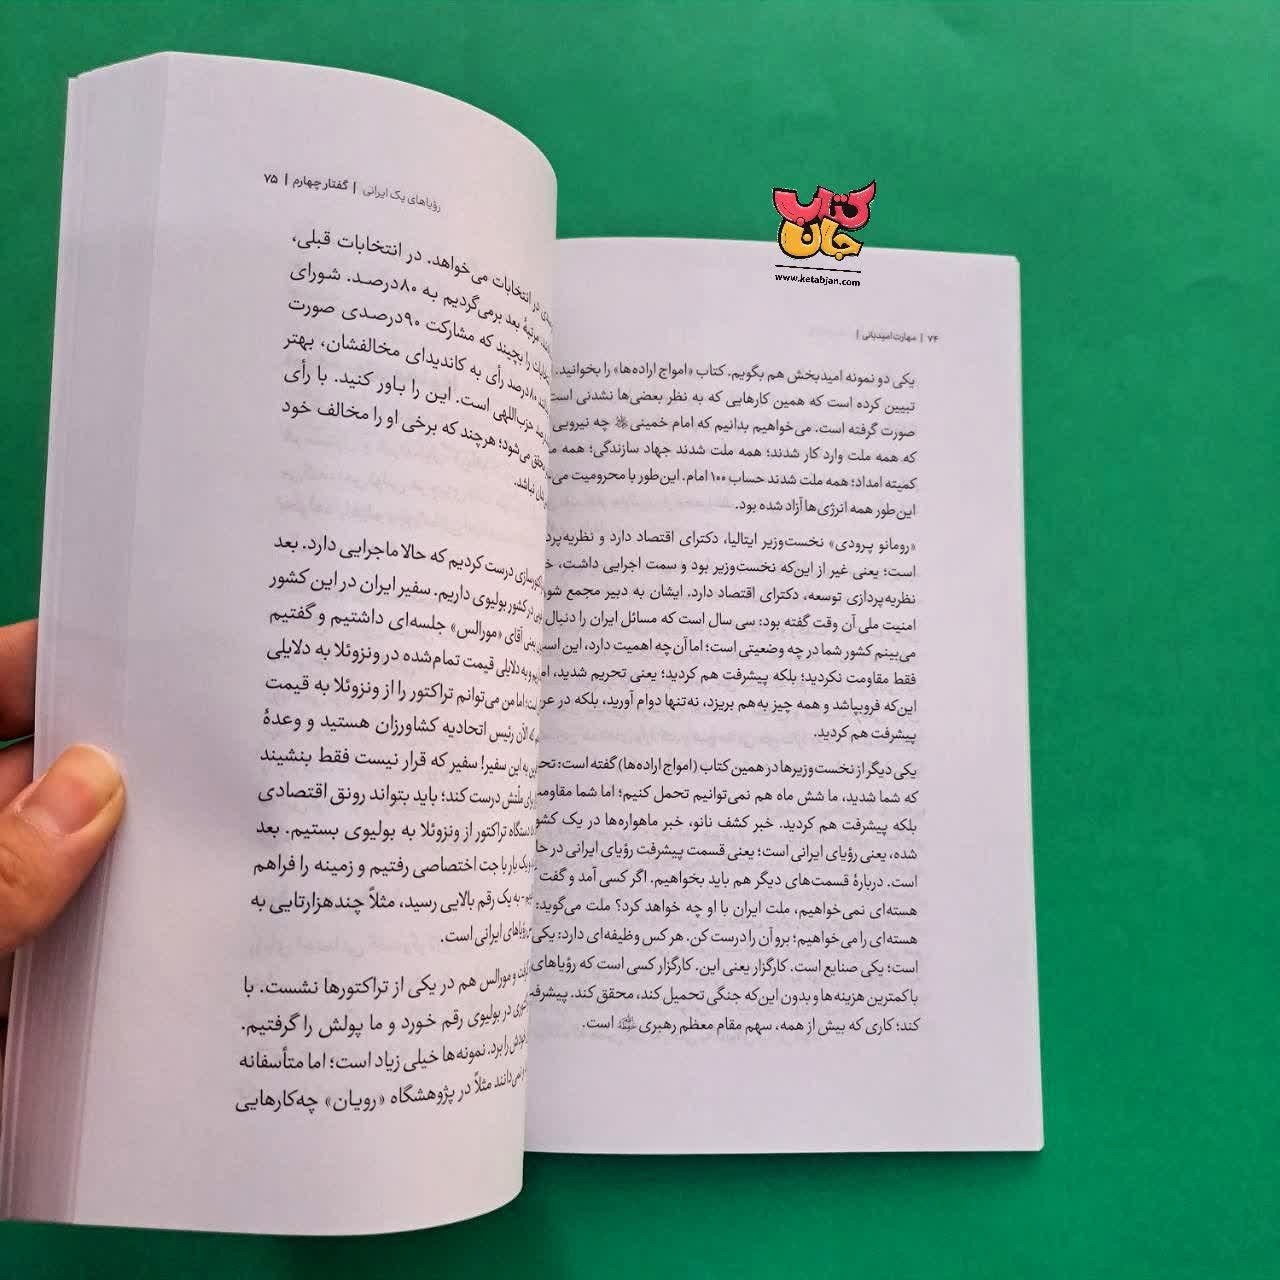 کتاب
جان
www.ketabjan.com
۷۴ | مهارت امیدبانی |
یکی دو نمونه امیدبخش هم بگویم. کتاب «امواج اراده‌ها» را بخوانید.
تبیین کرده است که همین کارهایی که به نظر بعضی‌ها نشدنی است
صورت گرفته است. می‌خواهیم بدانیم که امام خمینی چه نیرویی
که همه ملت وارد کار شدند؛ همه ملت شدند جهاد سازندگی؛ همه
کمیته امداد؛ همه ملت شدند حساب ۱۰۰ امام. این‌طور با محرومیت
این‌طور همه انرژی‌ها آزاد شده بود.
«رومانو پرودی» نخست‌وزیر ایتالیا، دکترای اقتصاد دارد و
است؛ یعنی غیر از این‌که نخست‌وزیر بود و سمت اجرایی داشت،
نظریه‌پردازی توسعه، دکترای اقتصاد دارد. ایشان به دبیر مجمع
امنیت ملی آن وقت گفته بود: سی سال است که مسائل ایران را دنبال
می‌بینم کشور شما در چه وضعیتی است؛ اما آن چه اهمیت دارد، این
فقط مقاومت نکردید؛ بلکه پیشرفت هم کردید؛ یعنی تحریم شدید،
این‌که فروبپاشد و همه چیز به‌هم بریزد، نه‌تنها دوام آورید، بلکه در
پیشرفت هم کردید.
یکی دیگر از نخست‌وزیرها در همین کتاب (امواج اراده‌ها) گفته است:
که شما شدید، ما شش ماه هم نمی‌توانیم تحمل کنیم؛ اما شما
بلکه پیشرفت هم کردید. خبر کشف نانو، خبر ماهواره‌ها در یک
شده، یعنی رؤیای ایرانی است؛ یعنی قسمت پیشرفت رؤیای ایرانی در
است. دربارهٔ قسمت‌های دیگر هم باید بخواهیم. اگر کسی آمد و گفت
هسته‌ای نمی‌خواهیم، ملت ایران با او چه خواهد کرد؟ ملت می‌گوید:
هسته‌ای را می‌خواهیم؛ برو آن را درست کن. هر کس وظیفه‌ای دارد: یکی
است؛ یکی صنایع است. کارگزار یعنی این. کارگزار کسی است که رؤیاهای
با کمترین هزینه‌ها و بدون این‌که جنگی تحمیل کند، محقق کند.
کند؛ کاری که بیش از همه، سهم مقام معظم رهبری است.
رؤیاهای یک ایرانی | گفتار چهارم | ۷۵
در انتخابات می‌خواهد. در انتخابات قبلی،
مرتبهٔ بعد برمی‌گردیم به ۸۰درصد. شورای
را بچیند که مشارکت ۹۰درصدی صورت
۸۰درصد رأی به کاندیدای مخالفشان، بهتر
حزب‌اللهی است. این را باور کنید. با رأی
می‌شود؛ هرچند که برخی او را مخالف خود
نباشد.
درست کردیم که حالا ماجرایی دارد. بعد
در کشور بولیوی داریم. سفیر ایران در این کشور
یعنی آقای «مورالس» جلسه‌ای داشتیم و گفتیم
به دلایلی قیمت تمام‌شده در ونزوئلا به دلایلی
اما من می‌توانم تراکتور را از ونزوئلا به قیمت
که الآن رئیس اتحادیه کشاورزان هستید و وعدهٔ
به این سفیر! سفیر که قرار نیست فقط بنشیند
ملتش درست کند؛ باید بتواند رونق اقتصادی
دستگاه تراکتور از ونزوئلا به بولیوی بستیم. بعد
یک بار با جت اختصاصی رفتیم و زمینه را فراهم
به یک رقم بالایی رسید، مثلاً چندهزارتایی به
رؤیاهای ایرانی است.
و مورالس هم در یکی از تراکتورها نشست. با
در بولیوی رقم خورد و ما پولش را گرفتیم.
را برد. نمونه‌ها خیلی زیاد است؛ اما متأسفانه
مثلاً در پژوهشگاه «رویان» چه‌کارهایی